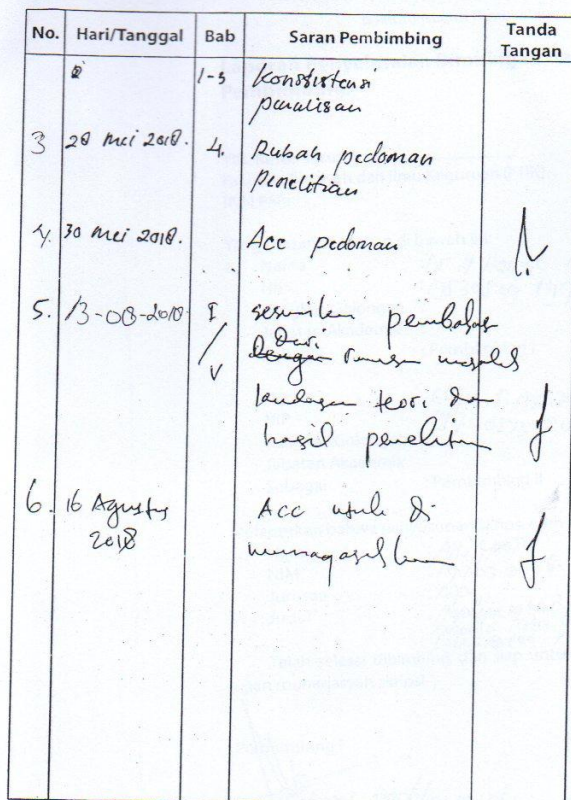 No. Hari/Tanggal Bab Saran Pembimbing Tanda Tangan
1-5 Konsistensi
penulisan
3 28 Mei 2018. 4. Rubah pedoman
penelitian
4. 30 Mei 2018. Acc pedoman
5. 13-08-2018 I / V sesuaikan pembahasan
dari
dengan rumusan masalah
landasan teori dan
hasil penelitian
6. 16 Agustus Acc utuk di
2018 munaqasahkan